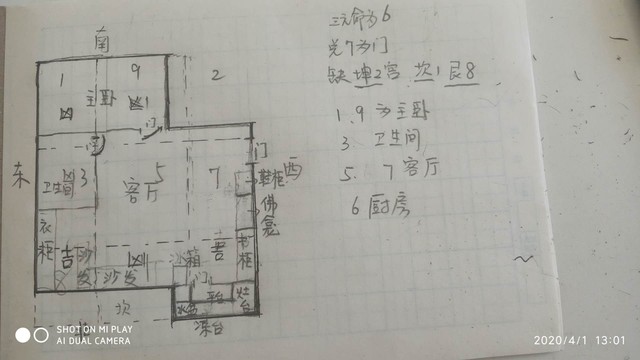 南
1
9
2
主卧
凶
凶
门
门
东
卫
3
客厅
5
7
门
西
鞋柜
佛龛
衣柜
吉
沙发
沙发
凶
冰箱
吉
书柜
门
平台
灶台
坎
凉台
三元命为6
兑7为门
缺坤2宫 坎1艮8
1、9为主卧
3 卫生间
5、7客厅
6厨房
SHOT ON MI PLAY
AI DUAL CAMERA
2020/4/1 13:01